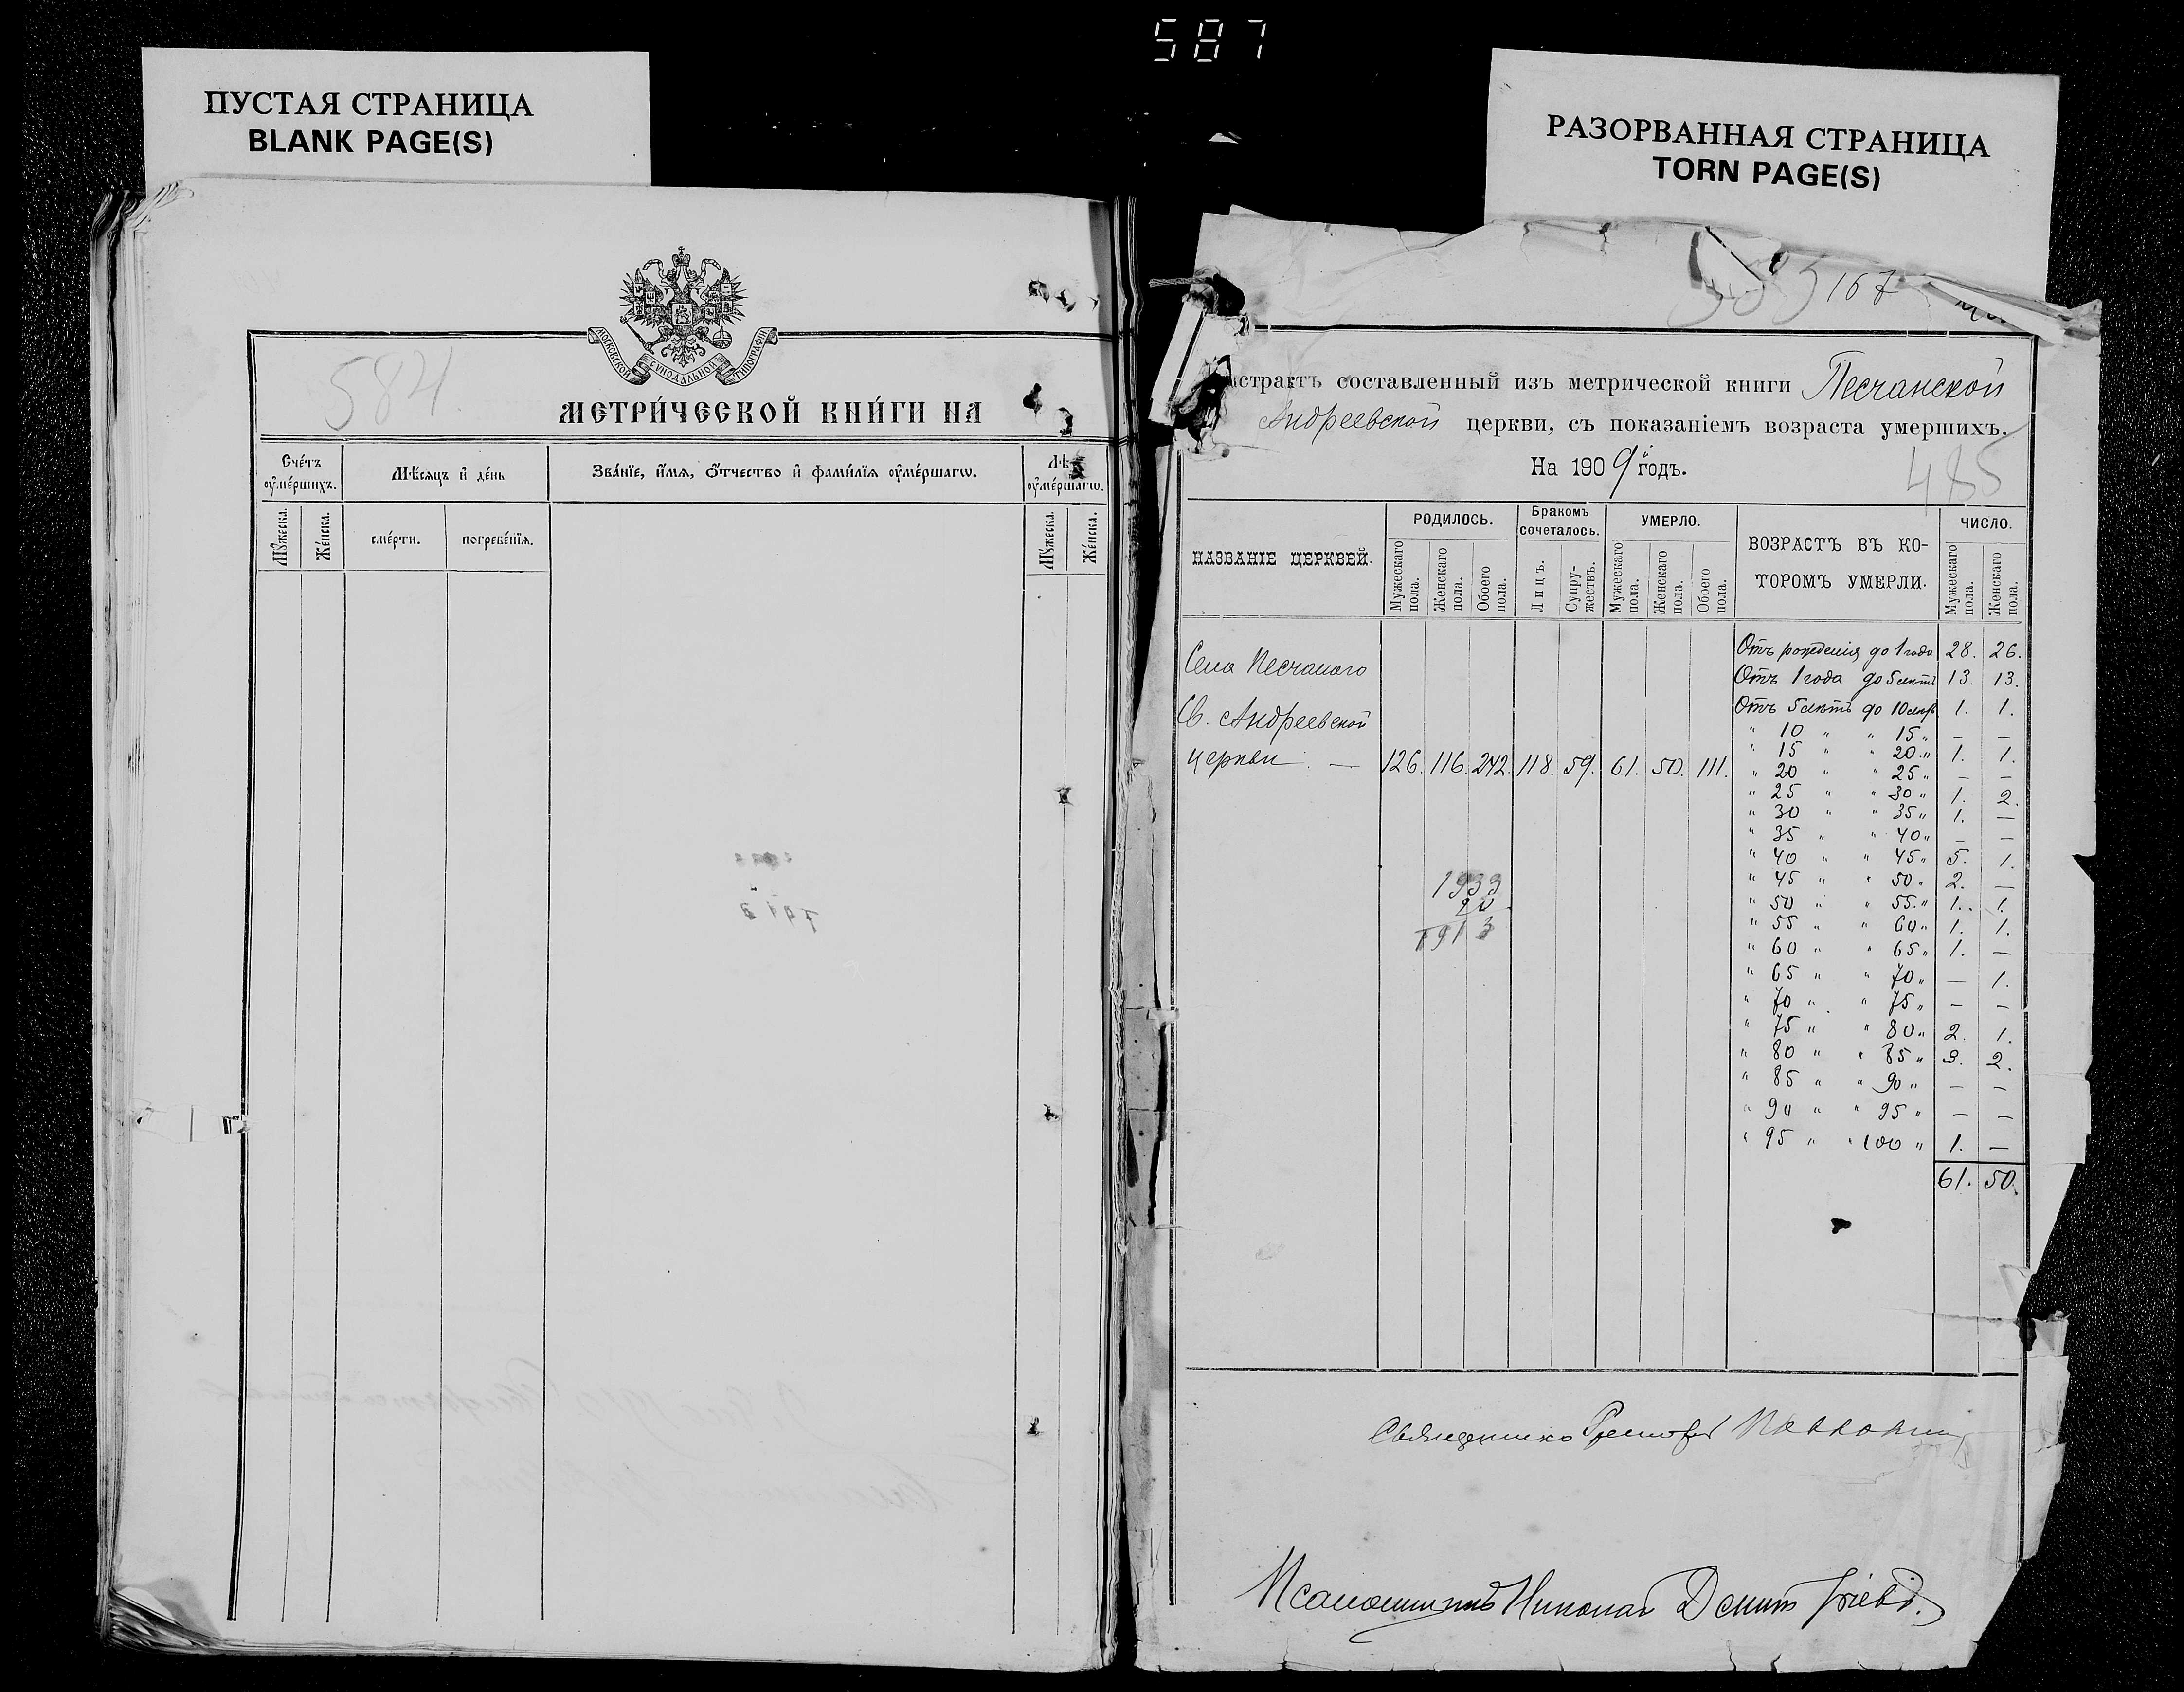 587
ПУСТАЯ СТРАНИЦА
BLANK PAGE(S)
РАЗОРВАННАЯ СТРАНИЦА
TORN PAGE(S)
МОСКОВСКОЙ СѴНОДАЛЬНОЙ ТИПОГРАФІИ
584.
МЕТРИ́ЧЕСКОЙ КНИ́ГИ НА
Сче́тъ оумершихъ.
Мѣсяцъ и де́нь
Зва́нїе, и́мѧ, ѻ́тчество и фами́лїѧ оуме́ршагѡ.
оуме́ршагѡ.
Мꙋ́жеска.
Же́нска.
сме́рти.
погребе́нїѧ.
Мꙋ́жеска.
Же́нска.
167
страктъ составленный изъ метрической книги Песчанской
Андреевской церкви, съ показаніемъ возраста умершихъ.
На 1909й годъ.
485
НАЗВАНІЕ ЦЕРКВЕЙ.
РОДИЛОСЬ.
Бракомъ сочеталось.
УМЕРЛО.
ВОЗРАСТЪ ВЪ КО-
ТОРОМЪ УМЕРЛИ.
ЧИСЛО.
Мужескаго пола.
Женскаго пола.
Обоего пола.
Лицъ.
Супружествъ.
Мужескаго пола.
Женскаго пола.
Обоего пола.
Мужескаго пола.
Женскаго пола.
Села Песчанаго
Св. Андреевской
церкви. — 126. 116. 242. 118. 59. 61. 50. 111.
Отъ рожденія до 1 года 28. 26.
Отъ 1 года до 5 лѣтъ 13. 13.
Отъ 5 лѣтъ до 10 лѣтъ 1. 1.
" 10 " " 15 " — —
" 15 " " 20 " 1. 1.
" 20 " " 25 " — —
" 25 " " 30 " 1. 2.
" 30 " " 35 " 1. —
" 35 " " 40 " — —
" 40 " " 45 " 5. 1.
" 45 " " 50 " 2. —
" 50 " " 55 " 1. 1.
" 55 " " 60 " 1. 1.
" 60 " " 65 " 1. —
" 65 " " 70 " — 1.
" 70 " " 75 " — —
" 75 " " 80 " 2. 1.
" 80 " " 85 " 3. 2.
" 85 " " 90 " — —
" 90 " " 95 " — —
" 95 " " 100 " 1. —
61. 50.
1933
20
1913
Священникъ
Псаломщикъ Николай Дмитріевъ.